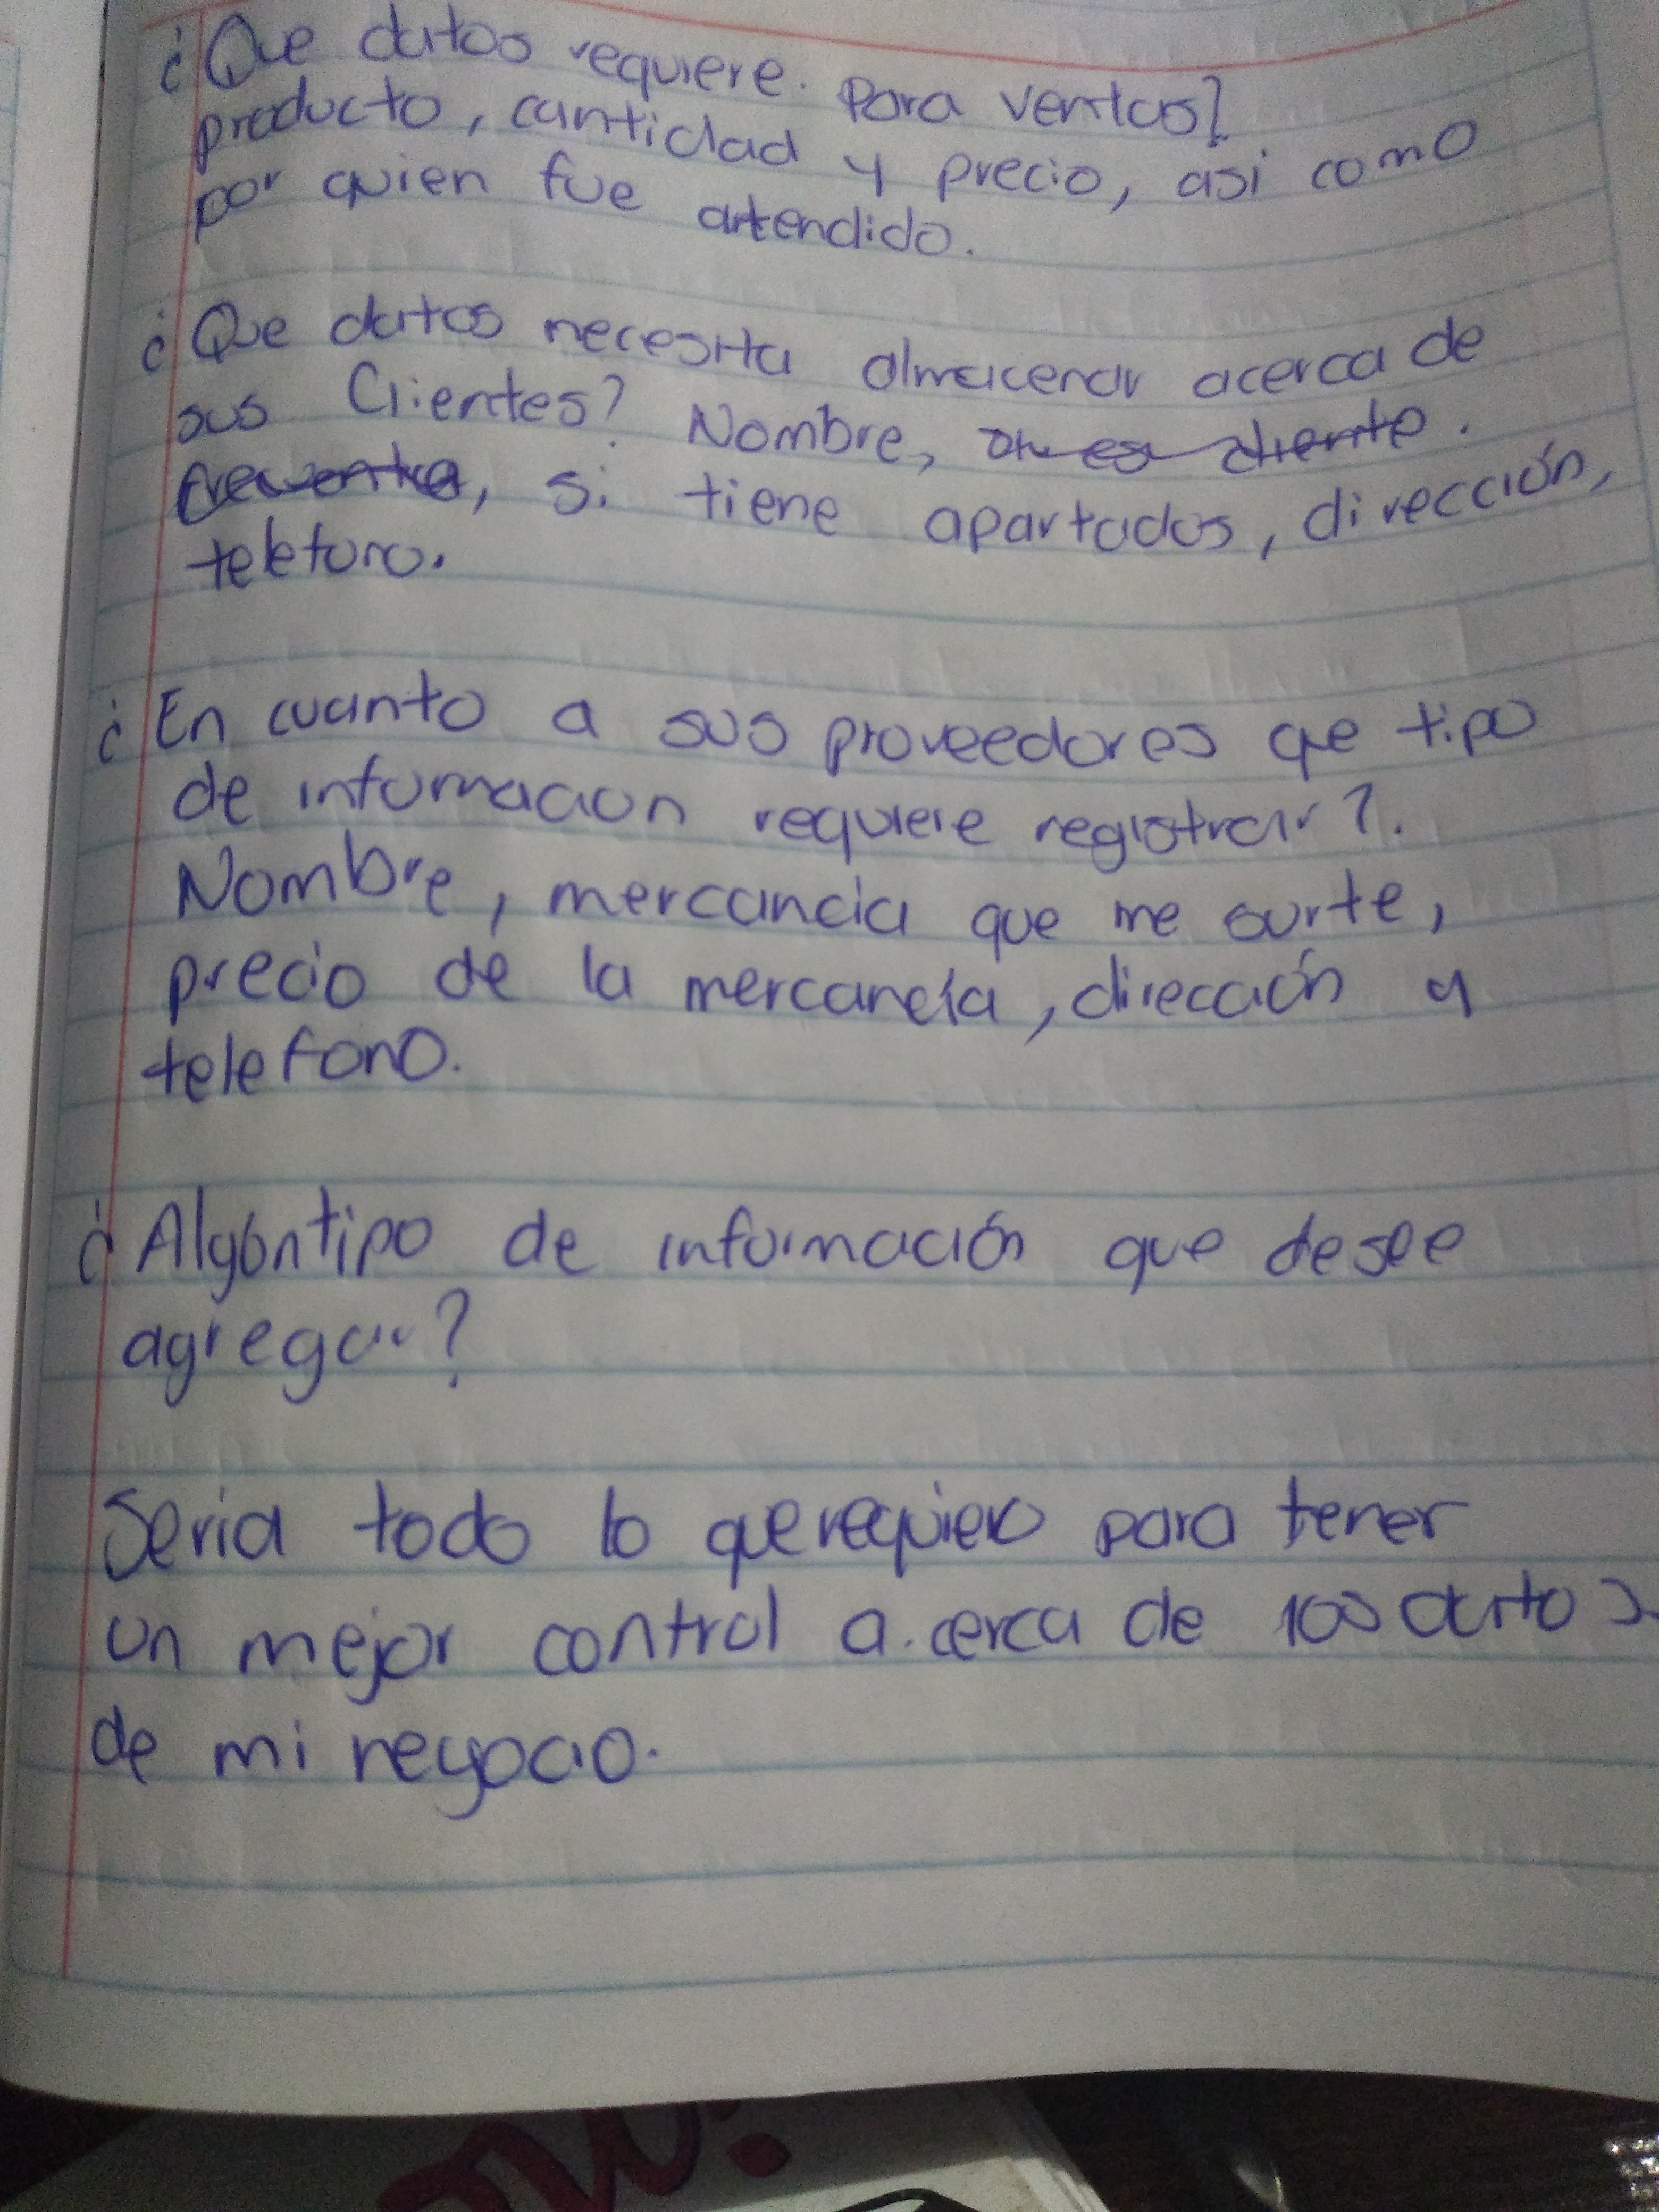 ¿Que datos requiere. Para ventas?
producto, cantidad y precio, asi como
por quien fue atendido.
¿Que datos necesita almacenar acerca de
sus Clientes? Nombre, si es cliente.
frecuente, si tiene apartados, dirección,
telefono.
¿En cuanto a sus proveedores que tipo
de informacion requiere registrar?.
Nombre, mercancia que me surte,
precio de la mercancía, dirección y
telefono.
¿Algún tipo de información que desee
agregar?
Seria todo lo que requiero para tener
un mejor control a.cerca de los datos
de mi negocio.